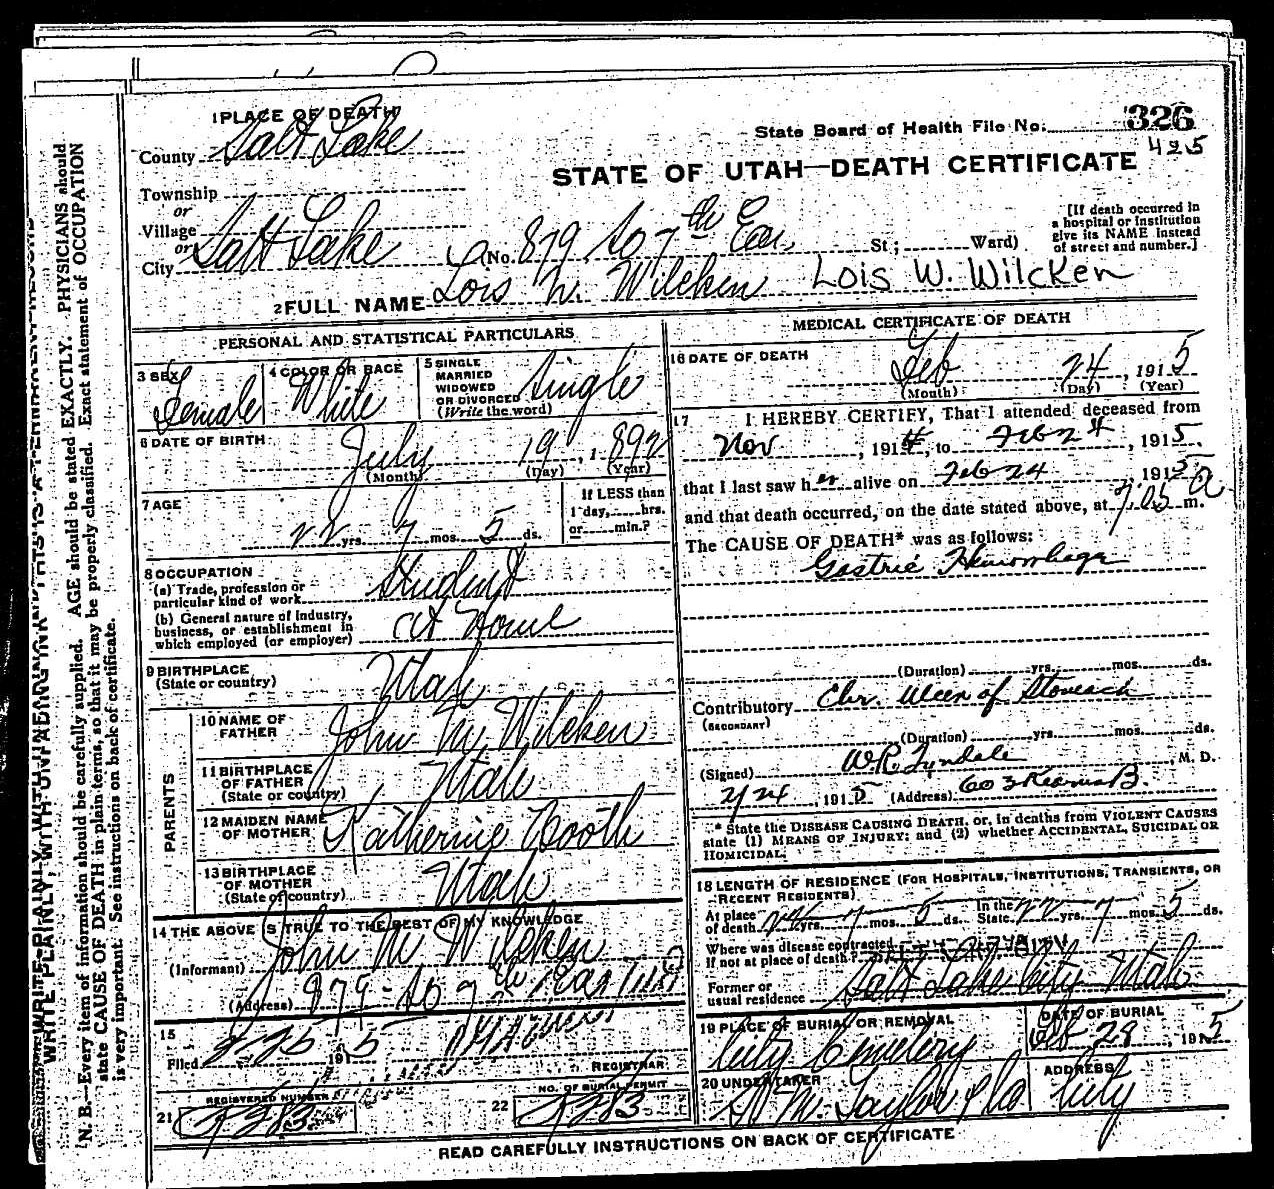 1 PLACE OF DEATH
State Board of Health File No. 326
425
County Salt Lake
STATE OF UTAH—DEATH CERTIFICATE
Township
or
Village
or
City Salt Lake (No. 879 So 7th Ea. St; Ward)
[If death occurred in
a hospital or institution
give its NAME instead
of street and number.]
2 FULL NAME Lois W. Wilcken Lois W. Wilcken
PERSONAL AND STATISTICAL PARTICULARS
3 SEX Female
4 COLOR OR RACE White
5 SINGLE
MARRIED
WIDOWED
OR DIVORCED
(Write the word) Single
6 DATE OF BIRTH July 19, 1892
(Month) (Day) (Year)
7 AGE
22 yrs. 7 mos. 5 ds.
If LESS than
1 day, hrs.
or min.?
8 OCCUPATION
(a) Trade, profession or
particular kind of work Student
(b) General nature of Industry,
business, or establishment in
which employed (or employer) At Home
9 BIRTHPLACE
(State or country) Utah
PARENTS
10 NAME OF
FATHER John M Wilcken
11 BIRTHPLACE
OF FATHER
(State or country) Utah
12 MAIDEN NAME
OF MOTHER Katherine Booth
13 BIRTHPLACE
OF MOTHER
(State or country) Utah
14 THE ABOVE IS TRUE TO THE BEST OF MY KNOWLEDGE
(Informant) John M Wilcken
(Address) 879 So 7th East
15
Filed 2-25 1915
REGISTRAR
REGISTERED NUMBER
21
NO. OF BURIAL PERMIT
22
MEDICAL CERTIFICATE OF DEATH
16 DATE OF DEATH
Feb 24, 1915
(Month) (Day) (Year)
17 I HEREBY CERTIFY, That I attended deceased from
Nov, 1914, to Feb 24, 1915,
that I last saw her alive on Feb 24, 1915
and that death occurred, on the date stated above, at 7.05 a m.
The CAUSE OF DEATH* was as follows:
Gastric Hemorrhage
(Duration) yrs. mos. ds.
Contributory Chr. Ulcer of Stomach
(SECONDARY)
(Duration) yrs. mos. ds.
(Signed) W R Tyndale, M. D.
2/24, 1915 (Address) 603 Kearns B.
* State the DISEASE CAUSING DEATH, or, in deaths from VIOLENT CAUSES
state (1) MEANS OF INJURY; and (2) whether ACCIDENTAL, SUICIDAL OR
HOMICIDAL.
18 LENGTH OF RESIDENCE (FOR HOSPITALS, INSTITUTIONS, TRANSIENTS, OR
RECENT RESIDENTS)
At place
of death 22 yrs. 7 mos. 5 ds. In the
State 22 yrs. 7 mos. 5 ds.
Where was disease contracted
If not at place of death?
Former or
usual residence Salt Lake City Utah
19 PLACE OF BURIAL OR REMOVAL
City Cemetery
DATE OF BURIAL
Feb 28, 1915
20 UNDERTAKER
S M. Taylor & Co
ADDRESS
City
READ CAREFULLY INSTRUCTIONS ON BACK OF CERTIFICATE
WRITE PLAINLY, WITH UNFADING INK—THIS IS A PERMANENT RECORD
N. B.—Every item of information should be carefully supplied. AGE should be stated EXACTLY. PHYSICIANS should
state CAUSE OF DEATH in plain terms, so that it may be properly classified. Exact statement of OCCUPATION
is very important. See instructions on back of certificate.